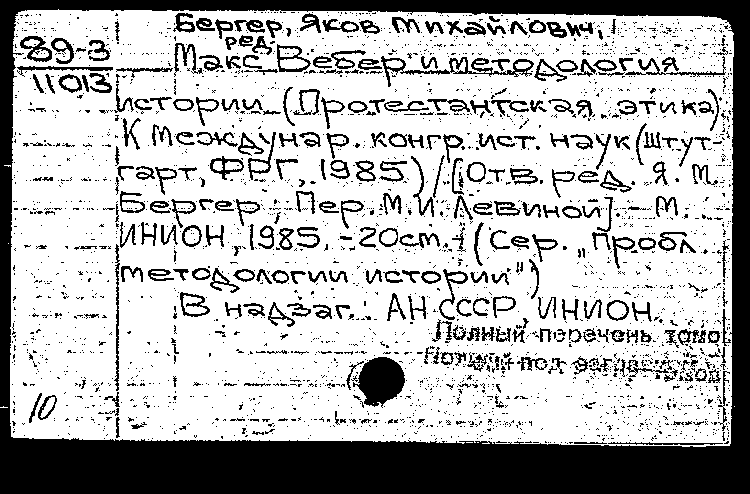 Бергер, Яков Михайлович,
ред.
89-3
11013
Макс Вебер и методология
истории (Протестантская этика)
К Междунар. конгр. ист. наук (Штут-
гарт, ФРГ, 1985) / [Отв. ред. Я. М.
Бергер ; Пер. М.И. Левиной]. - М. :
ИНИОН, 1985. - 20см. - (Сер. „Пробл.
методологии истории")
В надзаг. : АН СССР, ИНИОН.
Полный перечень томо
под
10